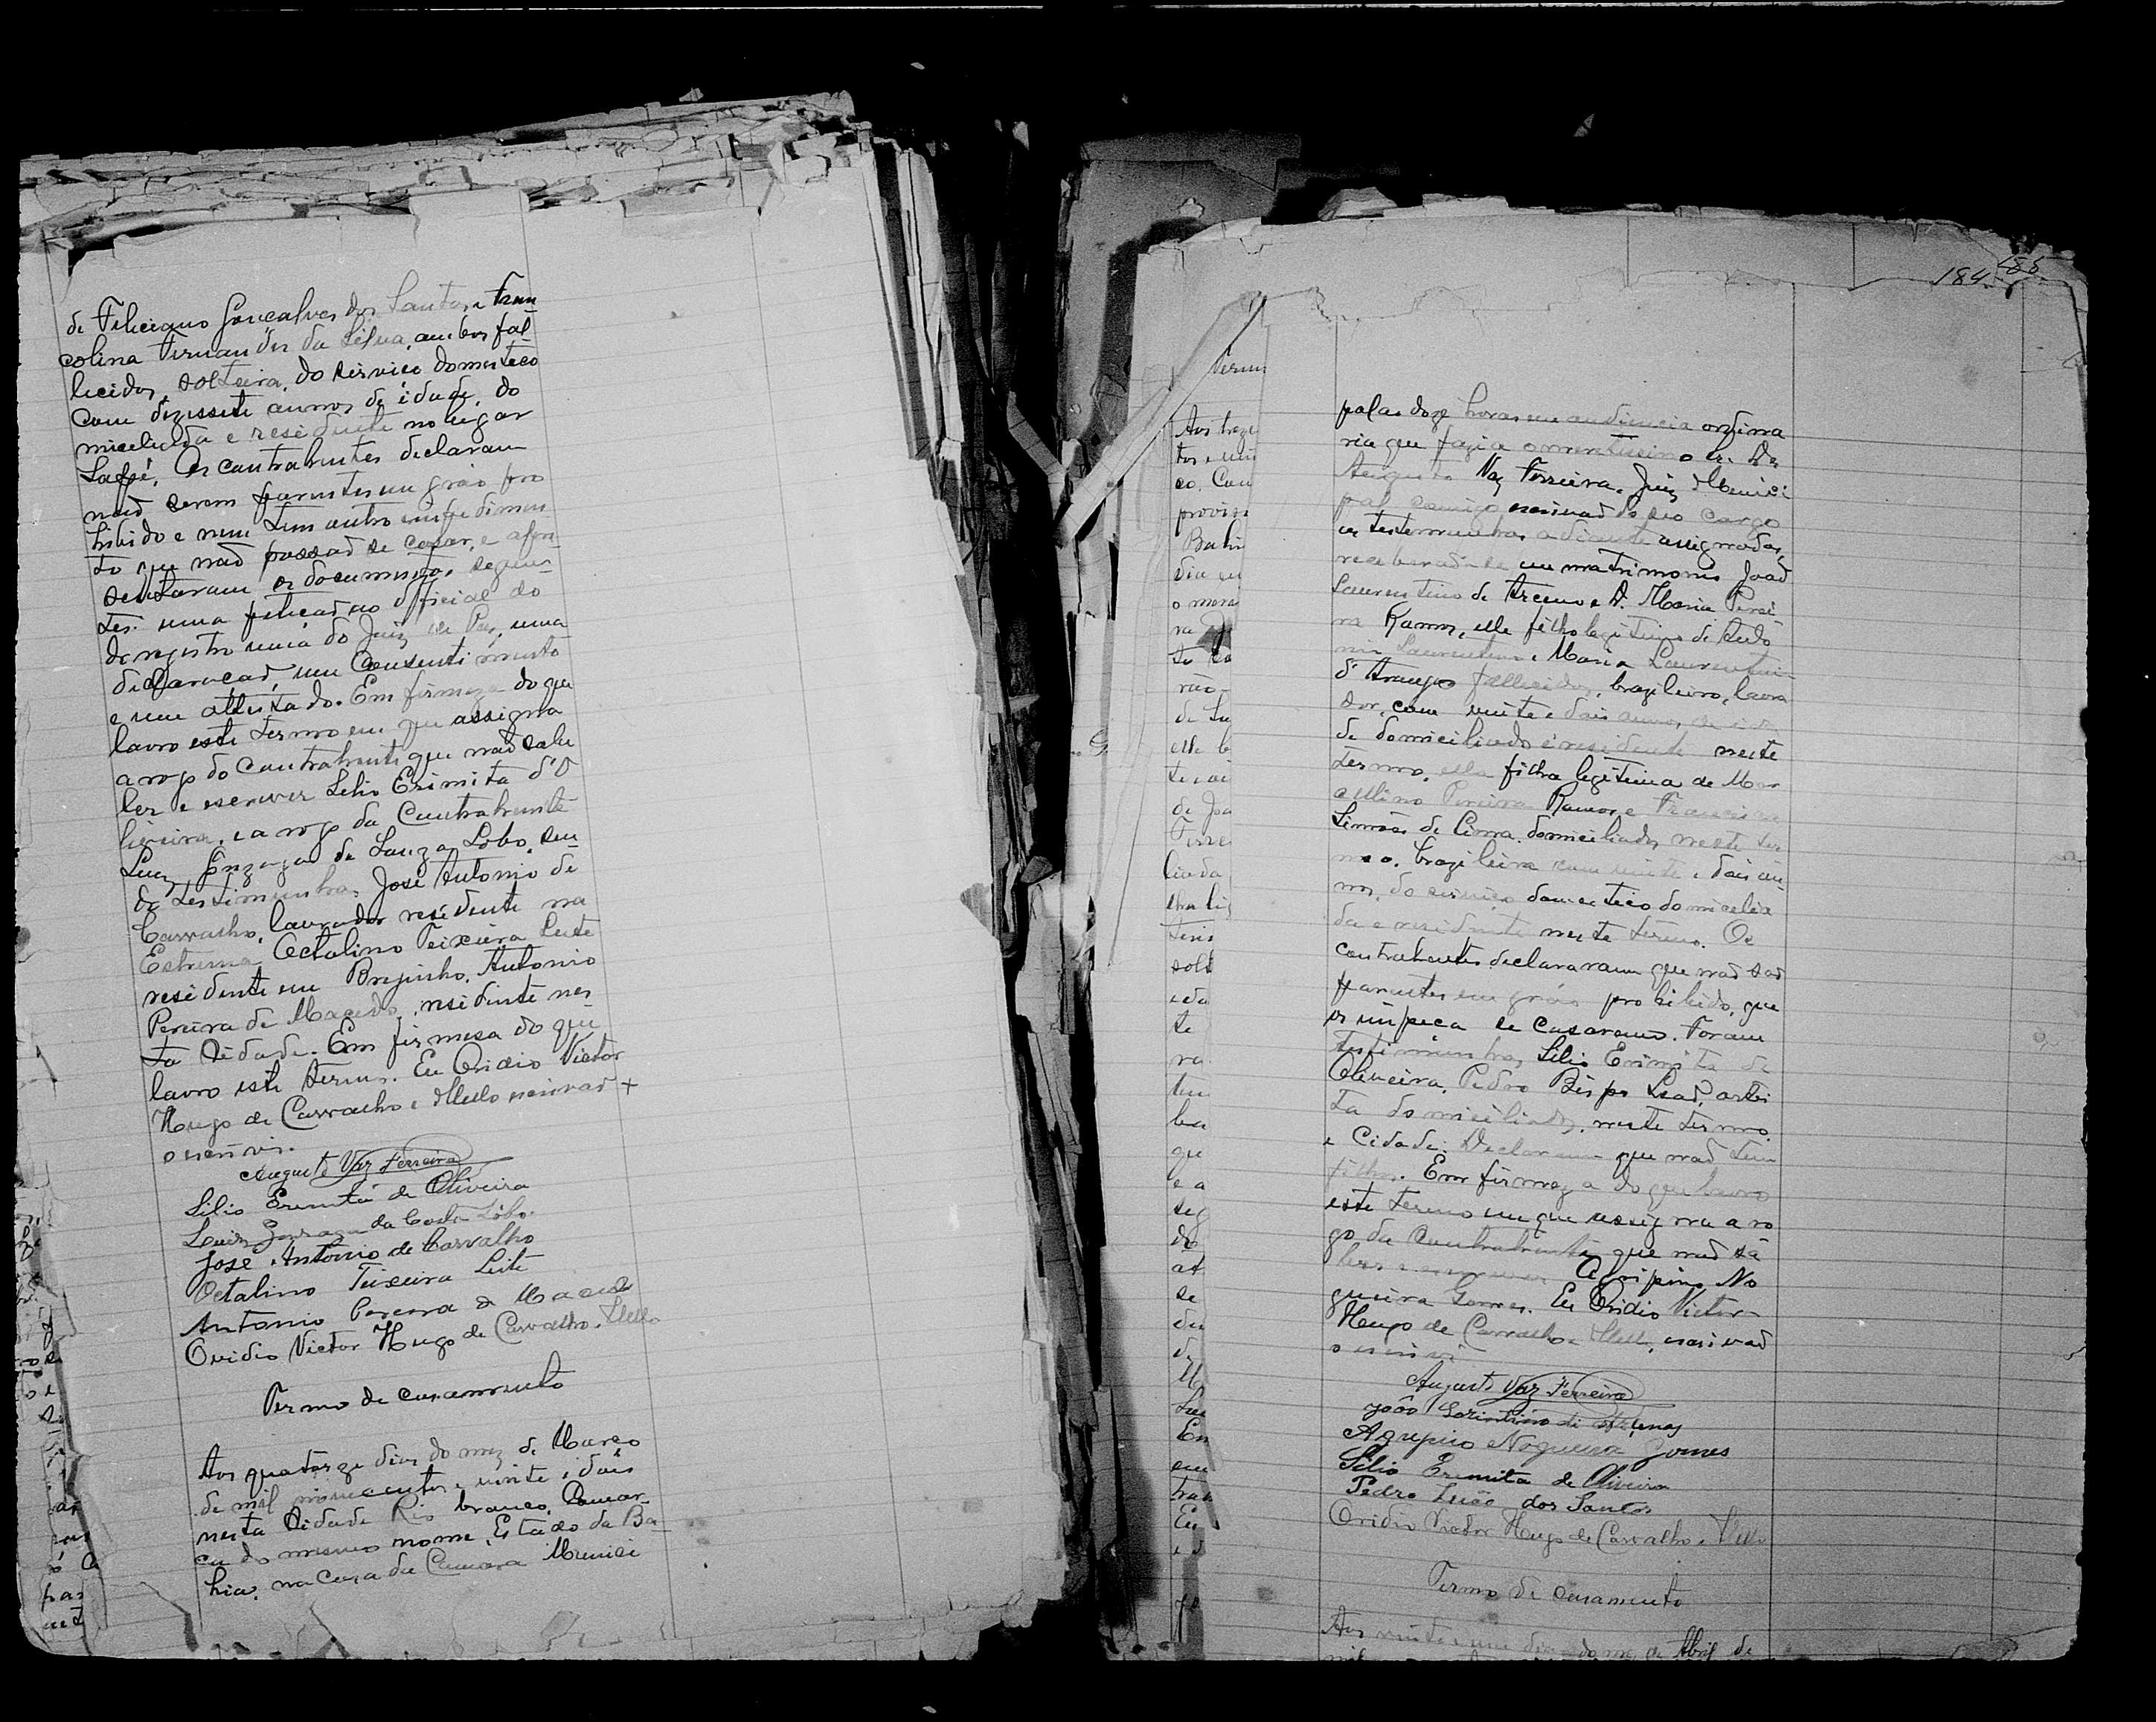 de Feliciano Gonçalves dos Santos e Fran
colina Fernandes da Silva, ambos fal-
lecidos, solteira, do serviço domestico
com dezessete annos de idade, do
miciliada e residente no lugar
Os contrahentes declaram
naõ serem parentes em gráo pro
hibido e nem tem outro impedimen
to que naõ possaõ se casar, e apre-
sentaram os documentos seguin-
tes: uma peticaõ ao official do
do registro uma do Juiz de Paz, uma
declaraçaõ, um Consentimento
e um attestado. Em firmeza do que
lavro este termo em que assigna
a rogo do Contrahente que naõ sabe
ler e escrever Lelio Erimita d'O
liveira, e a rogo da Contrahente
Luiz Gonzaga de Souza Lobo, sen-
do testimunhas José Antonio de
Carvalho, lavrador residente na
Estrema Octalino Teixeira Leite
residente em Brejinho, Antonio
Pereira de Macedo, residente nes
ta Cidade. Em firmesa do que
lavro este termo. Eu Ovidio Victor
Hugo de Carvalho e Mello escrivaõ +
o escrevi.
Augusto Vaz Ferreira
Lilio Eremita de Oliveira
Luiz Gonzaga da Costa Lôbo.
José Antonio de Carvalho
Octalino Teixeira Leite
Antonio Pereira de Macedo
Ovidio Victor Hugo de Carvalho e Mello
Termo de casamento
Aos quatorze dias do mez de Março
de mil novecentos e vinte e dois
nesta Cidade Rio branco, Comar-
ca do mesmo nome, Estado da Ba-
hia, na Casa da Camara Munici
184 185
Termo
Aos treze
tos e um
co. Com
provin
Bahi
dia em
o mere
va
to
rão
de
elle
de Joa
Ferre
liada
tem
solt
eda
te
ra
tem
ba
que
e a
seg
do
at
se
du
d
M
Lue
Em
em
tra
Eu
palas doze horas em audiencia ordina
ria que fazia o meretissimo sr. Dr
Augusto Vaz Ferreira, Juiz Munici
pal comigo escrivaõ do seo cargo
as testemunhas adiante assignadas,
receberaõ-se em matrimonio Joaõ
Laurentino de Arceno e D. Maria Perei
ra Ramos, elle filho legitimo de
Laurentino e Maria Laurentina
d'Araujo fallecidos, brazileiro, lavra
dor, com vinte e dois annos de ida
de domiciliado e residente neste
termo, ella filha legitima de Mar
cellino Pereira Ramos e Francisca
Simões de Lima domiciliados neste ter
mo, brazileira com vinte e dois an-
nos, do serviço domestico domicilia
da e residente neste termo. Os
contrahentes declararam que naõ saõ
parentes em gráo prohibido, que
os impeca se casarem. Foram
testimunhas Lilio Erimita de
Oliveira, Pedro Bispo Leaõ, artis
ta domiciliados, neste termo
e Cidade. Declaram que naõ tem
filhos. Em firmeza do que lavro
este termo em que assigna a ro
go da Contrahente que naõ sa
ber e escrever Agripino No
gueira Gomes. Eu Ovidio Victor
Hugo de Carvalho e Mello, escrivaõ
o escrevi
Augusto Vaz Ferreira
João Lorintino di
Agrepino Nogueira Gomes
Lilio Eremita de Oliveira
Pedro Leão dos Santos
Ovidio Victor Hugo de Carvalho e Mello
Termo de casamento
Aos vinte e um dias do mez de Abril de
mil